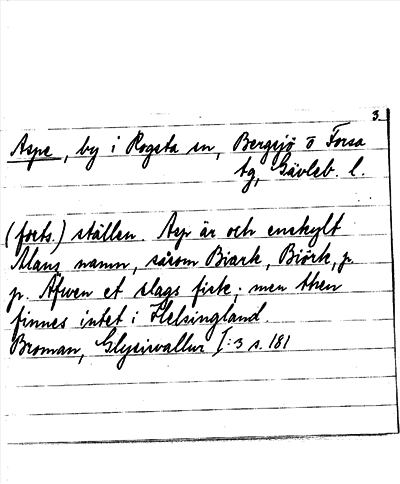 3.
Aspe, by i Rogsta sn, Bergsjö o Forsa
tg, Gävleb. l.
(forts.) ställen. Asp är och enskylt
Mans namn, såsom Biark, Biörk, p.
p. Äfwen et slags fisk; men then
finnes intet i Helsingland.
Broman, Glysisvallur I:3 s. 181